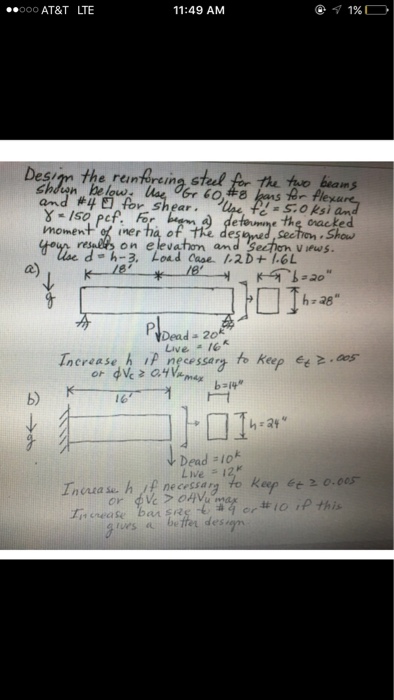 AT&T LTE 11:49 AM 1%
Design the reinforcing steel for the two beams
shown below. Use Gr 60, #8 bars for flexure,
and #4 for shear. Use f'c = 5.0 ksi and
γ = 150 pcf. For beam a) determine the cracked
moment of inertia of the designed section. Show
your results on elevation and section views.
Use d = h-3. Load Case 1.2D + 1.6L
a) 18' 18' b=20"
g h=28"
P Dead = 20k
Live = 16k
Increase h if necessary to keep εt ≥ .005
or φVc ≥ 0.4Vumax
b) 16' b=14"
g h=24"
Dead = 10k
Live = 12k
Increase h if necessary to keep εt ≥ 0.005
or φVc > 0.4Vu max
Increase bar size to #9 or #10 if this
gives a better design